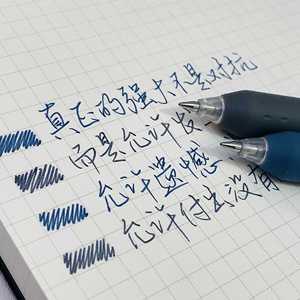 真正的强大不是对抗
而是允许发
允许遗憾
允许付出没有